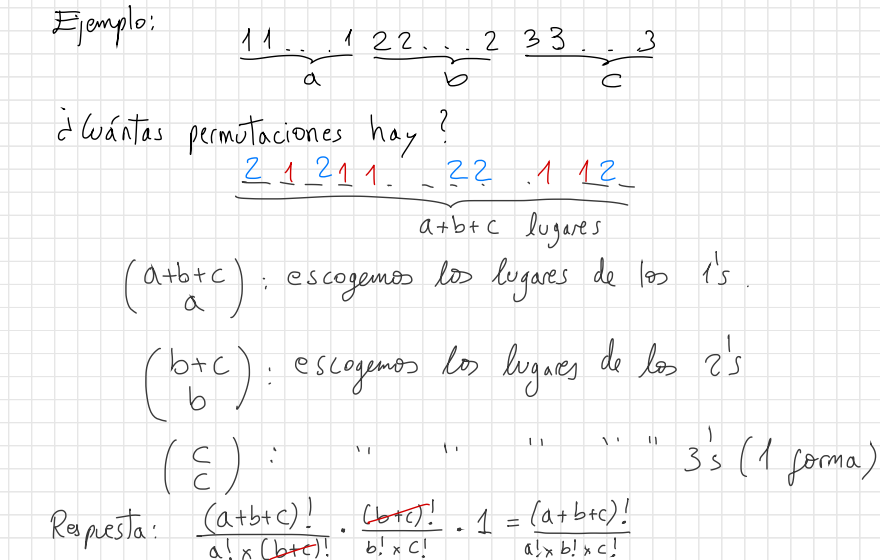 Ejemplo: 11...1 22...2 33...3
a b c
¿Cuántas permutaciones hay?
2 1 2 1 1 . . _ 2 2 . 1 1 2 _
a+b+c lugares
(a+b+c a) : escogemos los lugares de los 1's.
(b+c b) : escogemos los lugares de los 2's
(c c) : " " " " " 3's (1 forma)
Respuesta: (a+b+c)! / a! × (b+c)! · (b+c)! / b! × c! · 1 = (a+b+c)! / a! × b! × c!